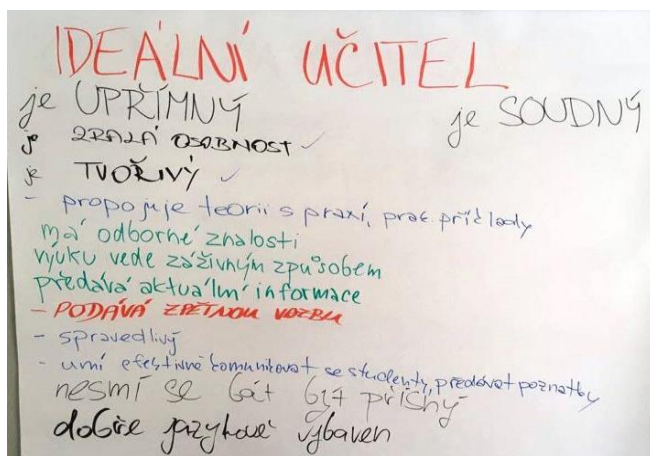 IDEÁLNÍ UČITEL
je UPŘÍMNÝ je SOUDNÝ
je ZRALÁ OSOBNOST ✓
je TVOŘIVÝ ✓
- propojuje teorii s praxí, prac. příklady
má odborné znalosti
výuku vede záživným způsobem
předává aktuální informace
- PODÁVÁ ZPĚTNOU VAZBU
- spravedlivý
- umí efektivně komunikovat se studenty, předávat poznatky
nesmí se bát být přísný
dobře jazykově vybaven